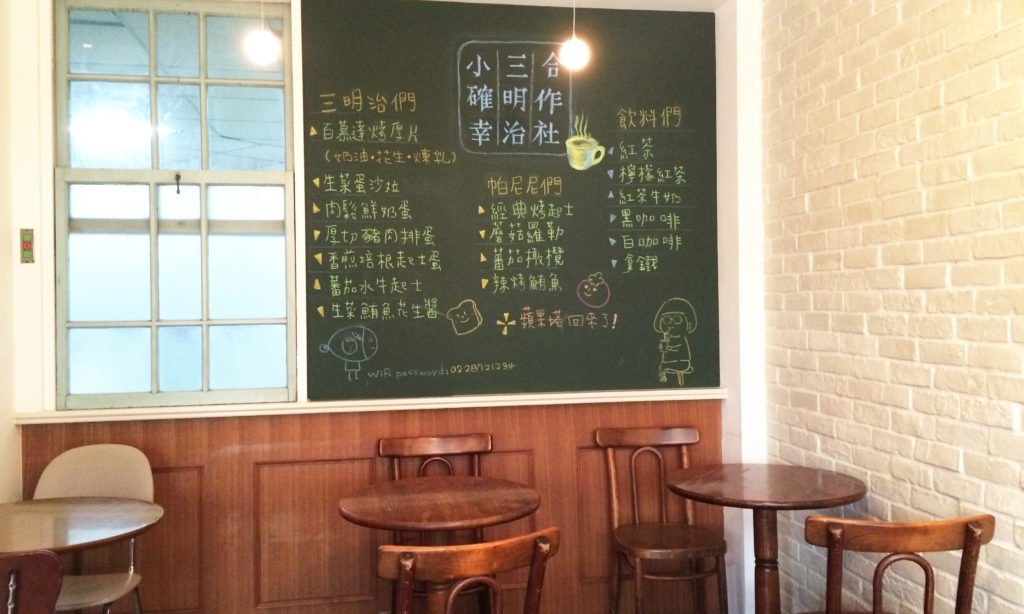 小確幸
三明治
合作社
三明治們
百慕達烤厚片
(奶油・花生・煉乳)
生菜蛋沙拉
肉鬆鮮奶蛋
厚切豬肉排蛋
香煎培根起士蛋
蕃茄水牛起士
生菜鮪魚花生醬
帕尼尼們
經典烤起士
蘑菇羅勒
蕃茄橄欖
辣烤鮪魚
蘋果塔回來了!
飲料們
紅茶
檸檬紅茶
紅茶牛奶
黑咖啡
白咖啡
拿鐵
Wifi password: 0228721234